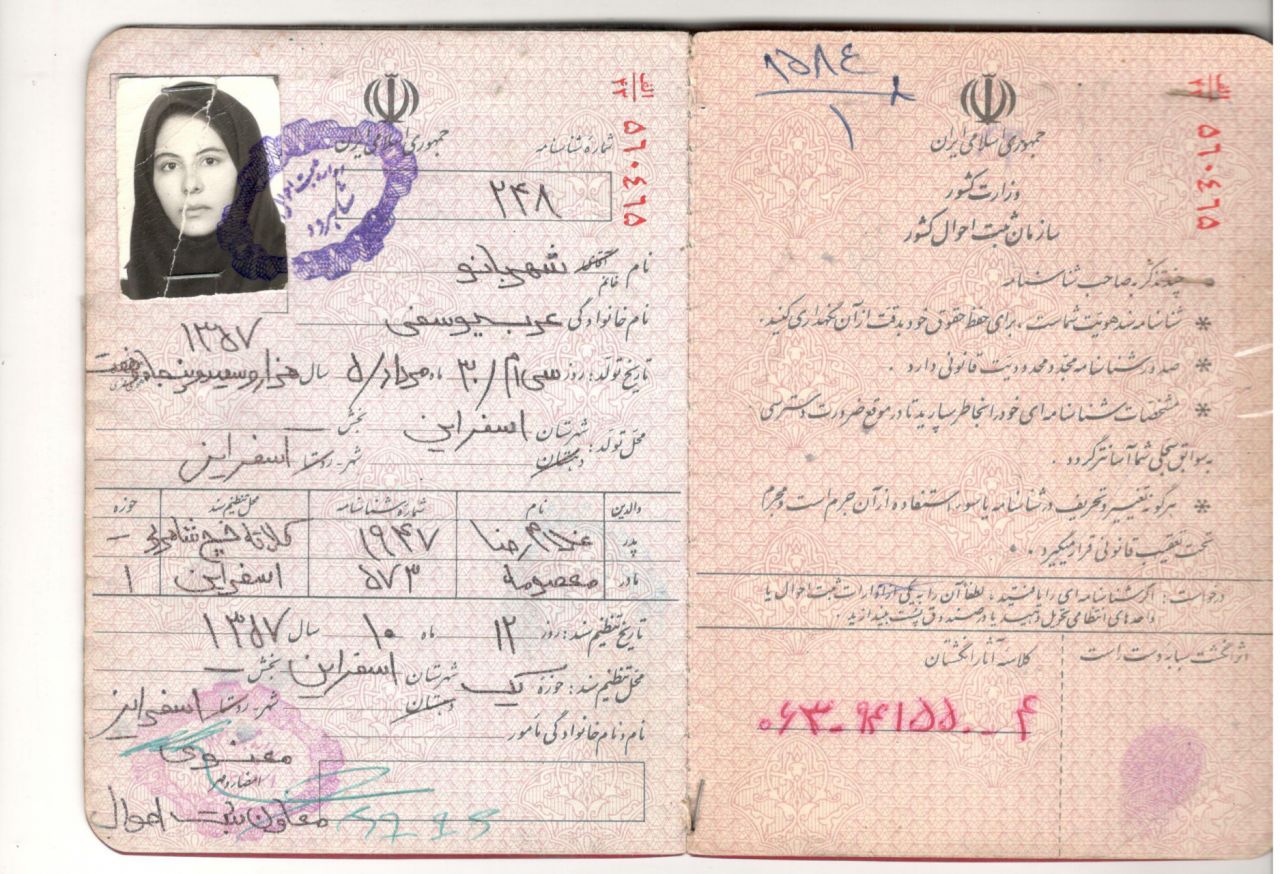 ۱۵۸۴
۱
الف
۲۳
۵۶۰۴۶۵
جمهوری اسلامی ایران
وزارت کشور
سازمان ثبت احوال کشور
چند تذکر به صاحب شناسنامه
* شناسنامه سند هویت شماست ، برای حفظ حقوق خود بدقت از آن نگهداری کنید .
* صدور شناسنامه مجدد محدودیت قانونی دارد .
* مشخصات شناسنامه‌ای خود را بخاطر بسپارید تا در موقع ضرورت دسترسی
به سوابق سجلی شما آسانتر گردد .
* هرگونه تغییر و تحریف در شناسنامه یا سوء استفاده از آن جرم است و مجرم
تحت تعقیب قانونی قرار میگیرد .
درخواست : اگر شناسنامه‌ای را یافتید ، لطفاً آن را به یکی از ادارات ثبت احوال یا
واحدهای انتظامی تحویل دهید یا در صندوق پست بیندازید .
اثر انگشت سبابه دست راست
کلاسه آثار انگشتان
الف
۲۳
۵۶۰۴۶۵
جمهوری اسلامی ایران
شماره شناسنامه
۲۴۸
شاهرود
نام خانم شهربانو
نام خانوادگی عرب یوسفی
۱۳۵۷
تاریخ تولد : روز سی‌ام / ۳۰ ماه مرداد / ۵ سال هزار و سیصد و پنجاه و هفت
محل تولد : شهرستان اسفراین بخش
دهستان شهر - روستا اسفراین
والدین نام شماره شناسنامه محل تنظیم سند حوزه
پدر غلامرضا ۱۹۴۷ -
مادر معصومه ۵۷۳ اسفراین ۱
تاریخ تنظیم سند : روز ۱۲ ماه ۱۰ سال ۱۳۵۷
محل تنظیم سند : حوزه یک شهرستان اسفراین بخش -
دهستان شهر - روستا اسفراین
نام و نام خانوادگی مأمور
معنوی
امضاء و مهر
معاون ثبت احوال